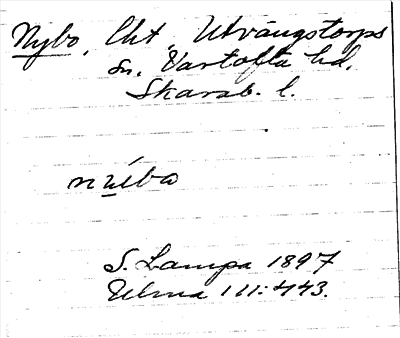 Nybo, Lht, Utvängstorps
sn. Vartofta hd.
Skarab. l.
S. Lampa 1897
111:443.